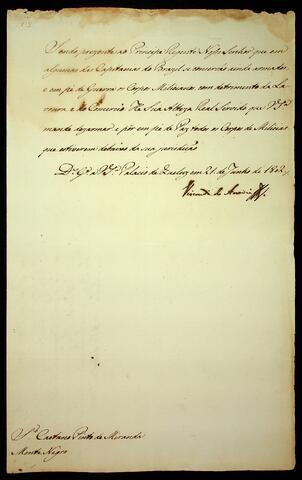 Sendo prezente ao Principe Regente Nosso Senhor que em
algumas das Capitanias do Brazil se conservão ainda armados,
e em pé de Guerra os Corpos Milicianos com detrimento da La-
voura e do Comercio: He Sua Alteza Real Servido que V.S.ª
mande dezarmar e pôr em pé de Paz todos os Corpos de Milicias
que estiverem debaixo da sua jurisdicção
D.s G.e a V.S.ª Palacio de Queluz em 21 de Junho de 1802
Visconde de Anadia
S.r Caetano Pinto de Miranda
Monte Negro